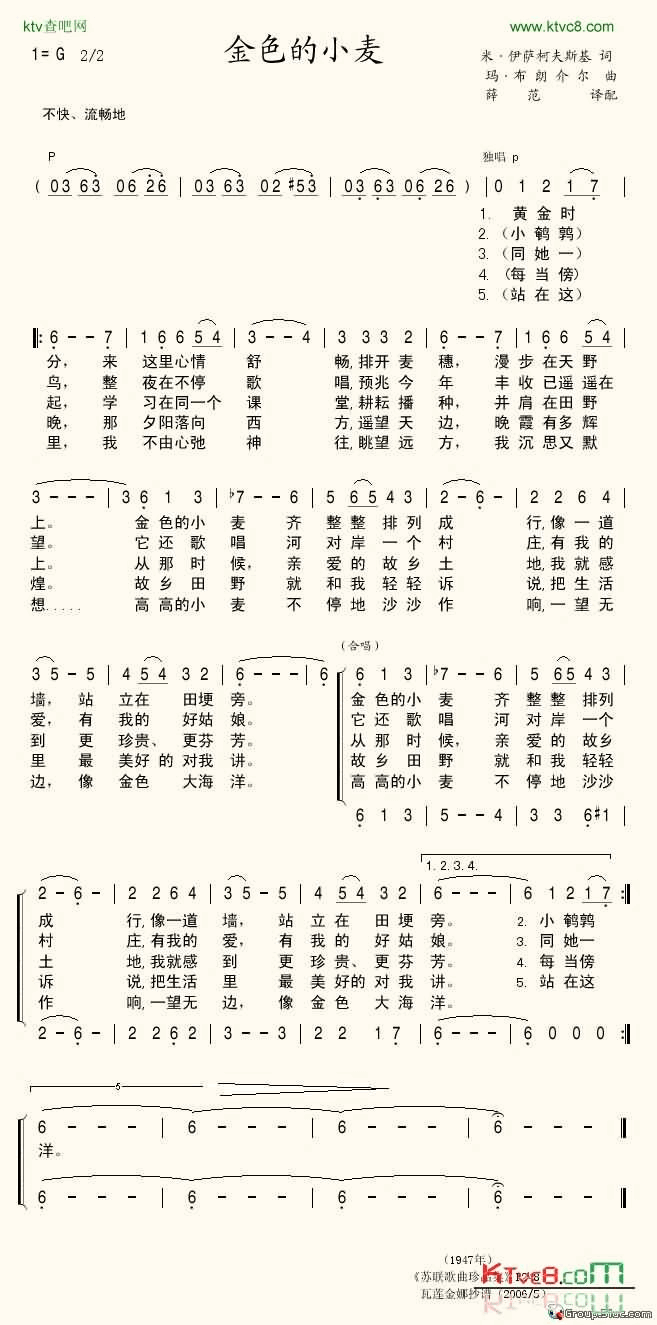 ktv查吧网
www.ktvc8.com
1=G 2/2
金色的小麦
米·伊萨柯夫斯基 词
玛·布朗介尔 曲
薛 范 译配
不快、流畅地
P
独唱 p
( 03 63 06 26 | 03 63 02 #53 | 03 63 06 26 ) | 0 1 2 1 7
1. 黄金时
2.(小鹌鹑)
3.(同她一)
4.(每当傍)
5.(站在这)
6 - - 7 | 1 6 6 5 4 | 3 - - 4 | 3 3 3 2 | 6 - - 7 | 1 6 6 5 4
分，来 这里心情 舒 畅,排开 麦 穗，漫 步在天野
鸟，整 夜在不停 歌 唱,预兆 今 年 丰 收已遥遥在
起，学 习在同一个 课 堂,耕耘 播 种，并 肩在田野
晚，那 夕阳落向 西 方,遥望 天 边，晚 霞有多辉
里，我 不由心弛 神 往,眺望 远 方，我 沉思又默
3 - - - | 3 6 1 3 | ♭7 - - 6 | 5 6 5 4 3 | 2 - 6 - | 2 2 6 4
上。 金色的小 麦 齐 整整 排列 成 行,像一道
望。 它还歌唱 河 对 岸 一个 村 庄,有我的
上。 从那时候，亲 爱的 故乡 土 地,我就感
煌。 故乡田野 就 和我 轻轻 诉 说,把生活
想..... 高高的小 麦 不 停地 沙沙 作 响,一望无
(合唱)
3 5 - 5 | 4 5 4 3 2 | 6 - - - | 6 6 1 3 | ♭7 - - 6 | 5 6 5 4 3
墙，站 立在 田埂 旁。 金色的小 麦 齐 整整 排列
爱，有 我的 好姑 娘。 它还歌唱 河 对岸 一个
到 更 珍贵、更芬 芳。 从那时候，亲 爱的 故乡
里 最 美好 的对我 讲。 故乡田野 就 和我 轻轻
边，像 金色 大海 洋。 高高的小 麦 不 停地 沙沙
6 1 3 | 5 - - 4 | 3 3 6 #1
1. 2. 3. 4.
2 - 6 - | 2 2 6 4 | 3 5 - 5 | 4 5 4 3 2 | 6 - - - | 6 1 2 1 7
成 行,像一道 墙，站 立在 田埂 旁。 2. 小鹌鹑
村 庄,有我的 爱，有 我的 好姑 娘。 3. 同她一
土 地,我就感 到 更 珍贵、更芬 芳。 4. 每当傍
诉 说,把生活 里 最 美好的 对我 讲。 5. 站在这
作 响,一望无 边，像 金色 大海 洋。
2 - 6 - | 2 2 6 2 | 3 - - 3 | 2 2 1 7 | 6 - - - | 6 0 0 0
5
6 - - - | 6 - - - | 6 - - - | 6 - - -
洋。
6 - - - | 6 - - - | 6 - - - | 6 - - -
(1947年)
《苏联歌曲珍品集》
KTvc8.com
瓦莲金娜抄谱(2006/5)